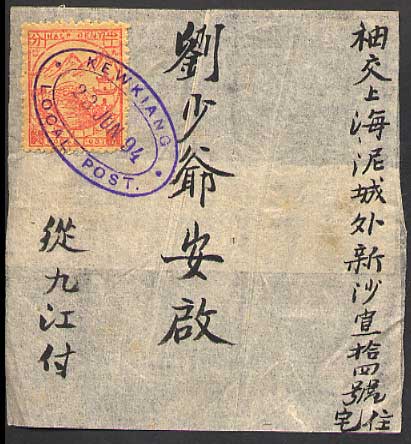 袖交上海泥城外新沙壹拾四號住宅
劉少爺安啟
從九江付
HALF CENT
分半
KEWKIANG
23 JUN 94
LOCAL POST.